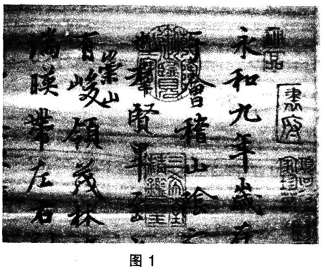 永和九年歲在
于會稽山陰
也羣賢畢至
崇山
有峻領茂林
湍暎帶左右
图 1